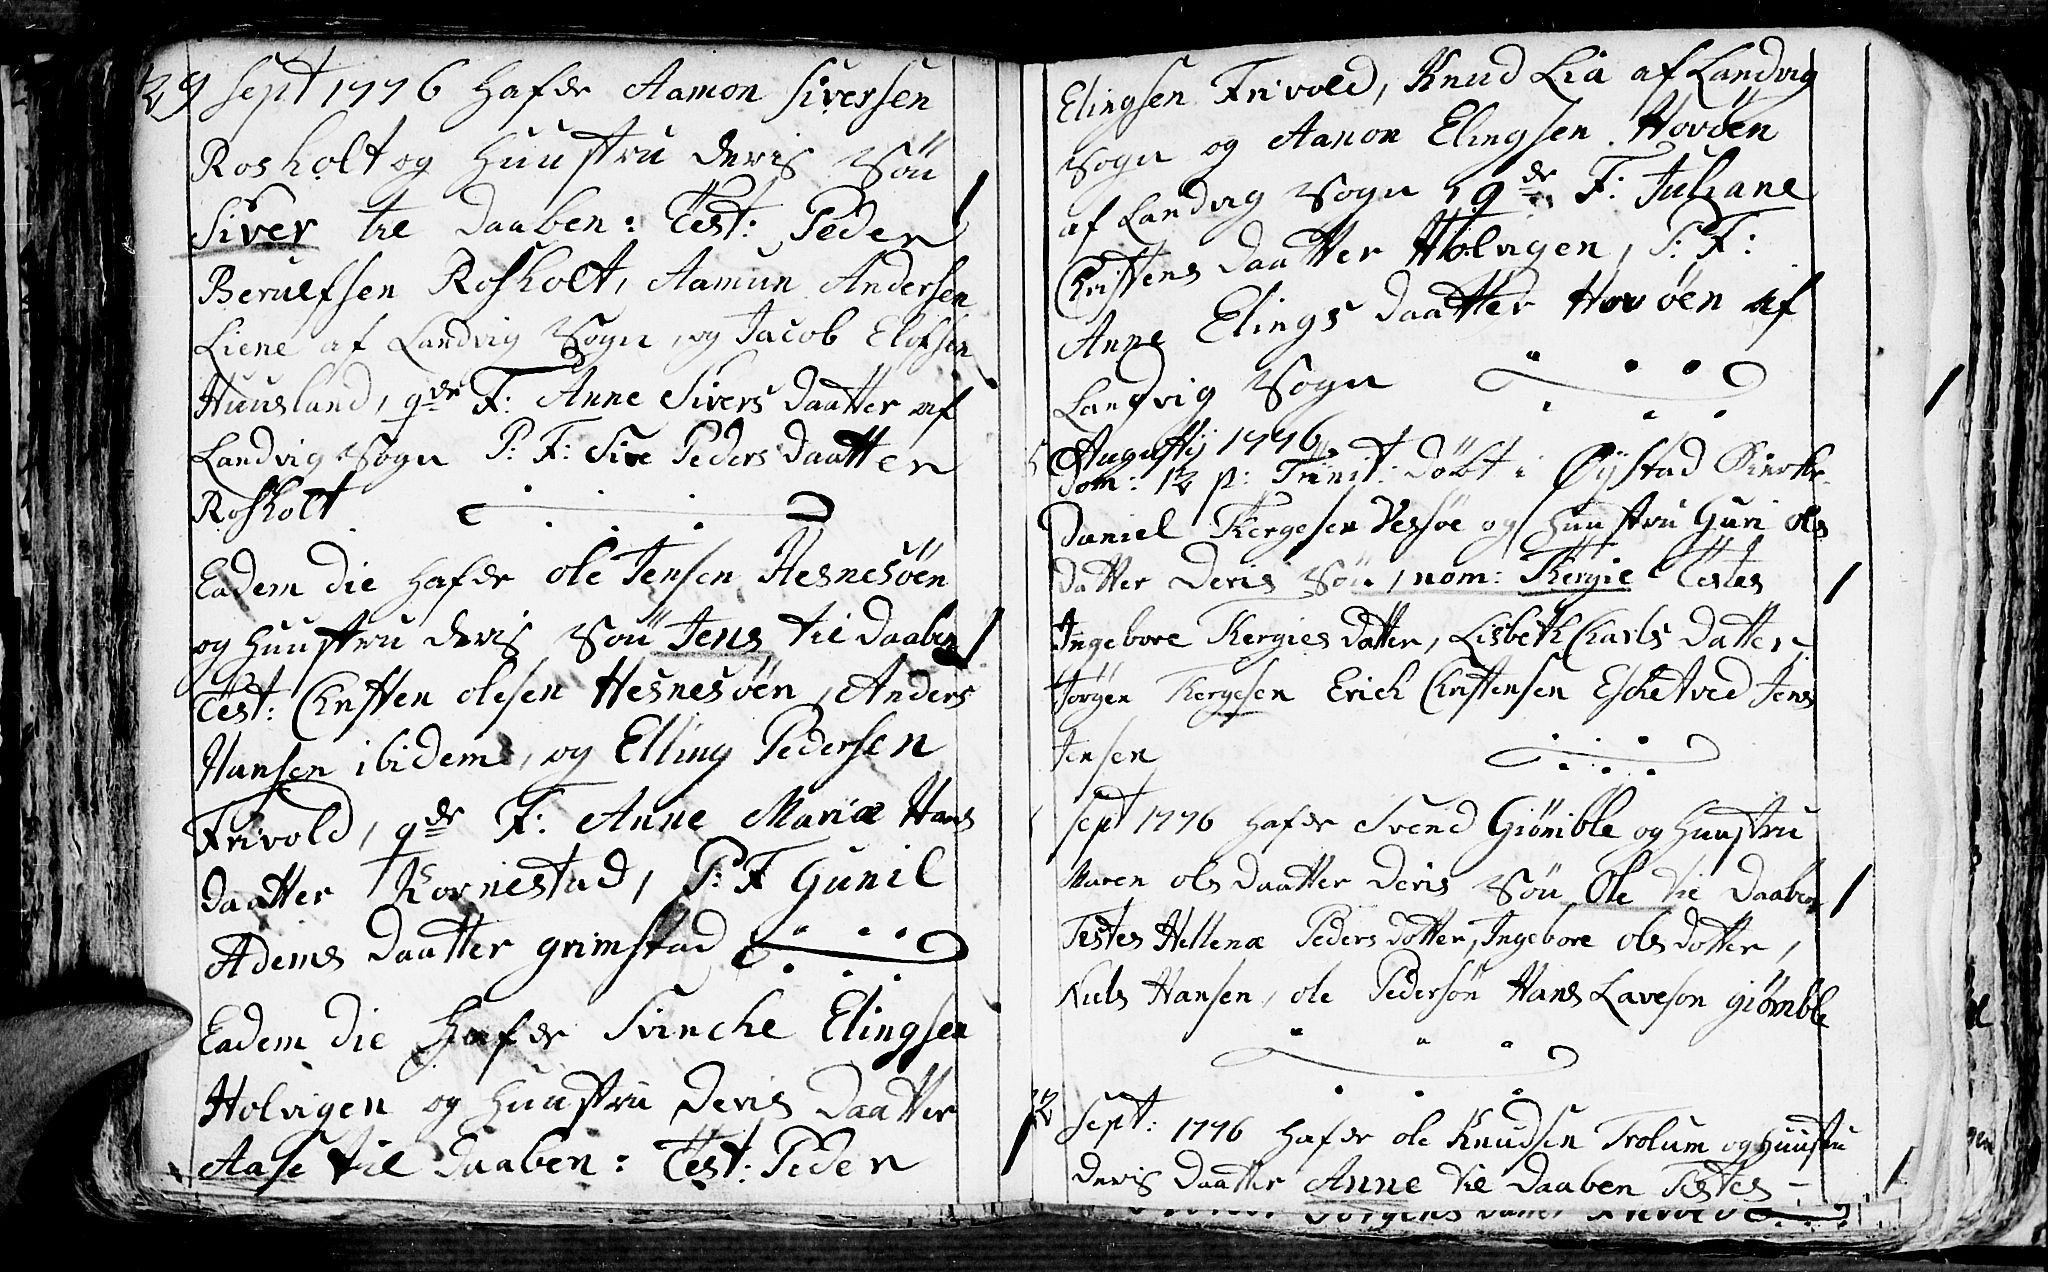 29 Sept 1776 hafde Aamon Siversen
Rosholt og Huustru deris Søn
Siver til Daaben: Test: Peder
Beruelfsen Rosholt, Aamun Andersen
Liene af Landvig Sogn, og Jacob Elofsen
Huusland, gde F: Anne Sivers Daatter af
Landvig Sogn P: F: Sire Peders Daatter
Rosholt
Eadem die hafde Ole Jensen Hesnesøen
og Huustru deris Søn Jens til Daaben
Test: Christen Olesen Hesnesøen, Anders
Hansen ibidem, og Elling Pedersen
Frivold, gde F: Anne Mariæ Hans
Daatter Kornestad, P: F Gunil
Adems Daatter Grimstad
Eadem die hafde Svinche Elingsen
Holvigen og Huustru Deris Daatter
Aase til Daaben: Test: Peder
Elingsen Frivold, Knud Lia af Landvig
Sogn og Aanon Elingsen Hovøen
af Landvig Sogn, gde F: Juliane
Christens Daatter Holvigen, P: F:
Anne Elings Daatter Hovøen af
Landvig Sogn
5 Augustij 1776
Dom: 12 p: Trinit: Døbt i Øystad Kirke
Daniel Tergesen Vessøe og Huustru Guri Ols
Datter Deris Søn, nom: Tergie Testes
Ingebore Tergies Datter, Lisbeth Charls Datter
Jørgen Tergesen Erich Christensen Eschetved Jens
Jensen
Sept 1776 hafde Svend Giømble og Huustru
Maren Ols Daatter Deris Søn Ole til Daaben
Testes Hellenæ Peders Dotter, Ingebore Ols Dotter,
Niels Hansen, Ole Pedersøn Hans Laveson Giømble
12 Sept: 1776 hafde Ole Knudsen Trolum og Huustru
Deris Daatter Anne til Daaben Testes